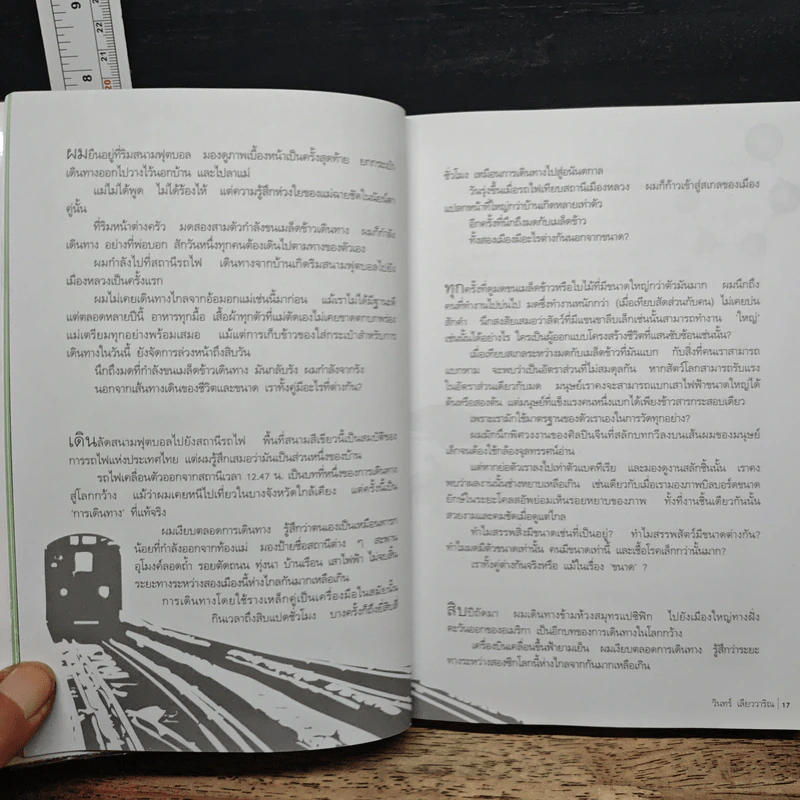 9
8
22
21
20
ผมยืนอยู่ที่ริมสนามฟุตบอล มองดูภาพเบื้องหน้าเป็นครั้งสุดท้าย ยกกระเป๋า
เดินทางออกไปวางไว้นอกบ้าน และไปลาแม่
แม่ไม่ได้พูด ไม่ได้ร้องไห้ แต่ความรู้สึกห่วงใยของแม่ฉายชัดในนัยน์ตา
คู่นั้น
ที่ริมหน้าต่างครัว มดสองสามตัวกำลังขนเมล็ดข้าวเดินทาง ผมก็กำลัง
เดินทาง อย่างที่พ่อบอก สักวันหนึ่งทุกคนต้องเดินไปตามทางของตัวเอง
ผมกำลังไปที่สถานีรถไฟ เดินทางจากบ้านเกิดริมสนามฟุตบอลไปยัง
เมืองหลวงเป็นครั้งแรก
ผมไม่เคยเดินทางไกลจากอ้อมอกแม่เช่นนี้มาก่อน แม้เราไม่ได้มีฐานะดี
แต่ตลอดหลายปีนี้ อาหารทุกมื้อ เสื้อผ้าทุกตัวที่แม่ตัดเองไม่เคยขาดตกบกพร่อง
แม่เตรียมทุกอย่างพร้อมเสมอ แม้แต่การเก็บข้าวของใส่กระเป๋าสำหรับการ
เดินทางในวันนี้ ยังจัดการล่วงหน้าถึงสิบวัน
นึกถึงมดที่กำลังขนเมล็ดข้าวเดินทาง มันกลับรัง ผมกำลังจากรัง
นอกจากเส้นทางเดินของชีวิตและขนาด เราทั้งคู่มีอะไรที่ต่างกัน?
เดินลัดสนามฟุตบอลไปยังสถานีรถไฟ พื้นที่สนามสีเขียวนี้เป็นสมบัติของ
การรถไฟแห่งประเทศไทย แต่ผมรู้สึกเสมอว่ามันเป็นส่วนหนึ่งของบ้าน
รถไฟเคลื่อนตัวออกจากสถานีเวลา 12.47 น. เป็นบทที่หนึ่งของการเดินทาง
สู่โลกกว้าง แม้ว่าผมเคยหนีไปเที่ยวในบางจังหวัดใกล้เคียง แต่ครั้งนี้เป็น
'การเดินทาง' ที่แท้จริง
ผมเงียบตลอดการเดินทาง รู้สึกว่าตนเองเป็นเหมือนทารก
น้อยที่กำลังออกจากท้องแม่ มองป้ายชื่อสถานีต่าง ๆ สะพาน
อุโมงค์ลอดถ้ำ รอยตัดถนน ทุ่งนา บ้านเรือน เสาไฟฟ้า ไม่จบสิ้น
ระยะทางระหว่างสองเมืองนี้ห่างไกลกันมากเหลือเกิน
การเดินทางโดยใช้รางเหล็กคู่เป็นเครื่องมือในสมัยนั้น
กินเวลาถึงสิบแปดชั่วโมง บางครั้งก็ถึงยี่สิบสี่
ชั่วโมง เหมือนการเดินทางไปสู่อนันตกาล
วันรุ่งขึ้นเมื่อรถไฟเทียบสถานีเมืองหลวง ผมก็ก้าวเข้าสู่สเกลของเมือง
แปลกหน้าที่ใหญ่กว่าบ้านเกิดหลายเท่าตัว
อีกครั้งที่นึกถึงมดกับเมล็ดข้าว
ทั้งสองเมืองมีอะไรต่างกันนอกจากขนาด?
ทุกครั้งที่ดูมดขนเมล็ดข้าวหรือใบไม้ที่มีขนาดใหญ่กว่าตัวมันมาก ผมนึกถึง
คนที่ทำงานไปบ่นไป มดซึ่งทำงานหนักกว่า (เมื่อเทียบสัดส่วนกับคน) ไม่เคยบ่น
สักคำ นึกสงสัยเสมอว่าสัตว์ที่มีแขนขาลีบเล็กเช่นนั้นสามารถทำงาน 'ใหญ่'
เช่นนั้นได้อย่างไร ใครเป็นผู้ออกแบบโครงสร้างชีวิตที่แสนซับซ้อนเช่นนั้น?
เมื่อเทียบสเกลระหว่างมดกับเมล็ดข้าวที่มันแบก กับสิ่งที่คนเราสามารถ
แบกหาม จะพบว่าเป็นอัตราส่วนที่ไม่สมดุลกัน หากสัตว์โลกสามารถรับแรง
ในอัตราส่วนเดียวกับมด มนุษย์เราคงจะสามารถแบกเสาไฟฟ้าขนาดใหญ่ได้
ต้นหรือสองต้น แต่มนุษย์ที่แข็งแรงคนหนึ่งแบกได้เพียงข้าวสารกระสอบเดียว
เพราะเรามักใช้มาตรฐานของตัวเราเองในการวัดทุกอย่าง?
ผมมักนึกพิศวงงานของศิลปินจีนที่สลักบทกวีลงบนเส้นผมของมนุษย์
เล็กจนต้องใช้กล้องจุลทรรศน์อ่าน
แต่หากย่อตัวเราลงไปเท่าตัวแบคทีเรีย และมองดูงานสลักชิ้นนั้น เราคง
พบว่าผลงานนั้นช่างหยาบเหลือเกิน เช่นเดียวกับเมื่อเรามองภาพบิลบอร์ดขนาด
ยักษ์ในระยะใกล้ย่อมเห็นรอยหยาบของภาพ ทั้งที่งานชิ้นเดียวกันนั้น
สวยงามและคมชัดเมื่อดูแต่ไกล
ทำไมสรรพสิ่งมีขนาดเช่นที่เป็นอยู่? ทำไมสรรพสัตว์มีขนาดต่างกัน?
ทำไมมดมีตัวขนาดเท่านั้น คนมีขนาดเท่านี้ และเชื้อโรคเล็กกว่านั้นมาก?
เราทั้งคู่ต่างกันจริงหรือ แม้ในเรื่อง 'ขนาด' ?
สิบปีถัดมา ผมเดินทางข้ามห้วงสมุทรแปซิฟิก ไปยังเมืองใหญ่ทางฝั่ง
ตะวันออกของอเมริกา เป็นอีกบทของการเดินทางในโลกกว้าง
เครื่องบินเคลื่อนขึ้นฟ้ายามเย็น ผมเงียบตลอดการเดินทาง รู้สึกว่าระยะ
ทางระหว่างสองซีกโลกนี้ห่างไกลจากกันมากเหลือเกิน
วินทร์ เลียววาริณ | 17